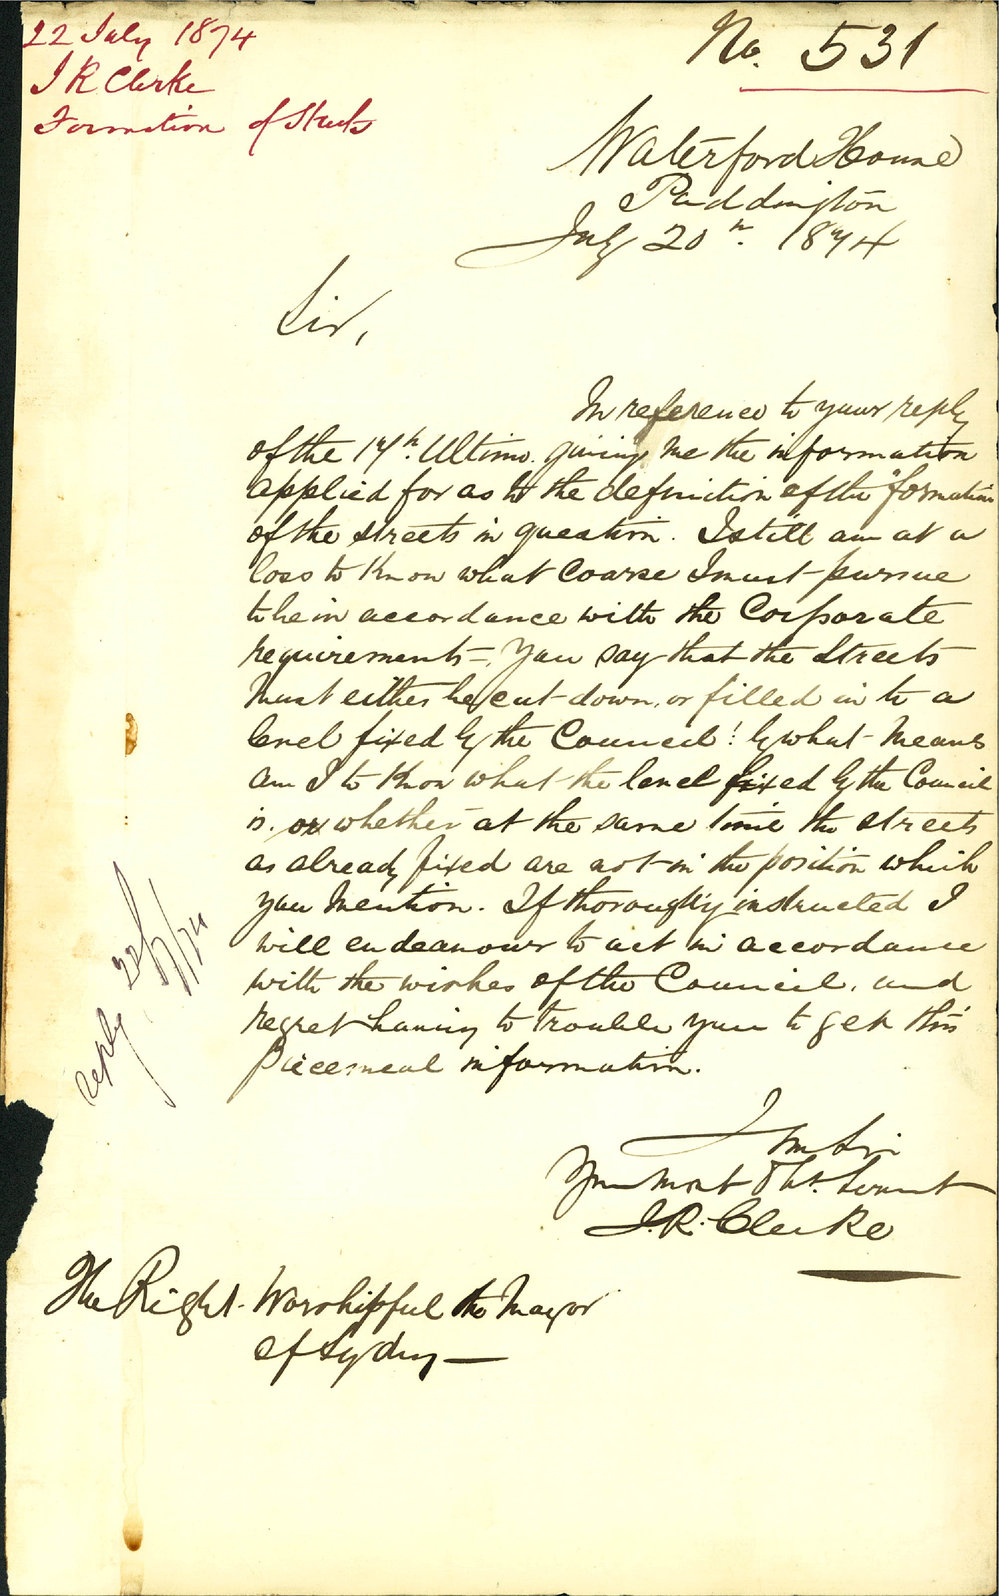 22 July 1874
J R Clerke
Formation of Streets
No. 531
Waterford House
Paddington
July 20th. 1874
Sir,
In reference to your reply
of the 17th. Ultimo. giving me the information
applied for as to the definition of the "formation
of the streets in question. I still am at a
loss to know what coarse I must pursue
to be in accordance with the Corporate
requirements–, You say that the Streets
must either be cut down, or filled in to a
level fixed by the Council! by what means
am I to know what the level fixed by the Council
is. or whether at the same time the streets
as already fixed are not in the position which
you mention. If thoroughly instructed I
will endeavour to act in accordance
with the wishes of the Council, and
regret having to trouble you to get this
piecemeal information.
I am Sir
Your most Obt. Servant
J. R. Clerke
The Right Worshipful the Mayor
of Sydney —
reply 22/7/74